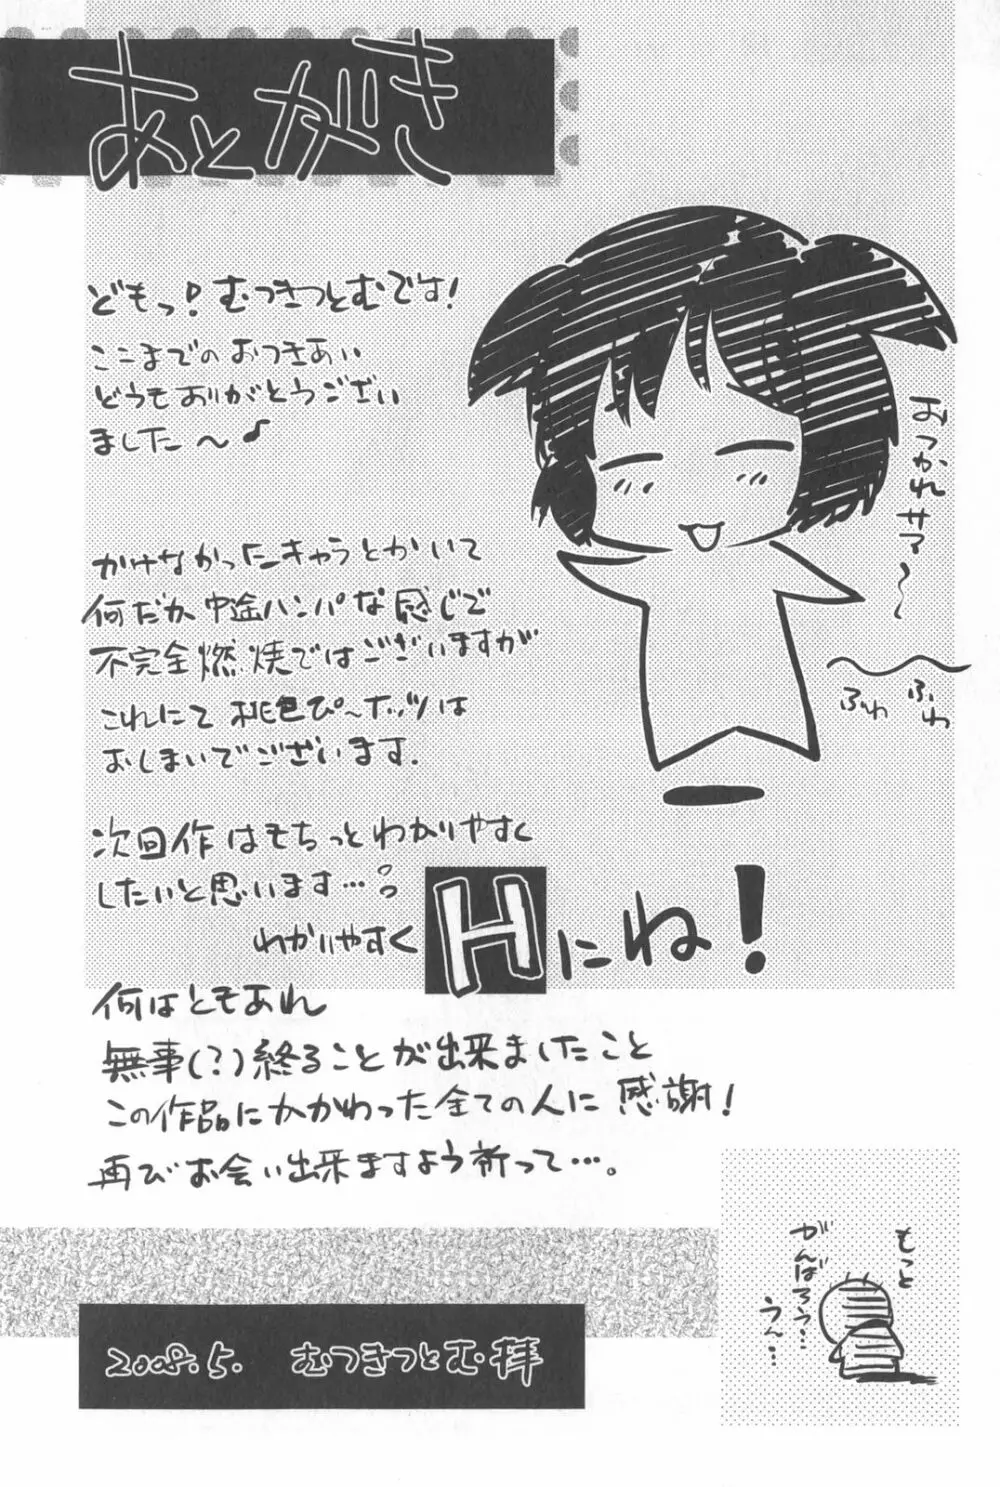 あとがき
どもっ! むつきつとむです!
ここまでのおつきあい
どうもありがとうござい
ました〜♪
おつかれサマ〜〜
ふわ
ふわ
かけなかったキャラとかいて
何だか中途ハンパな感じで
不完全燃焼ではございますが
これにて桃色ぴ〜ホッツは
おしまいでございます.
次回作はもちっとわかりやすく
したいと思います…
わかりやすく H にね!
何はともあれ
無事(?)終ることが出来ましたこと
この作品にかかわった全ての人に感謝!
再びお会い出来ますよう祈って…。
もっと
がんばろう…
うん…
2008.5. むつきつとむ拝